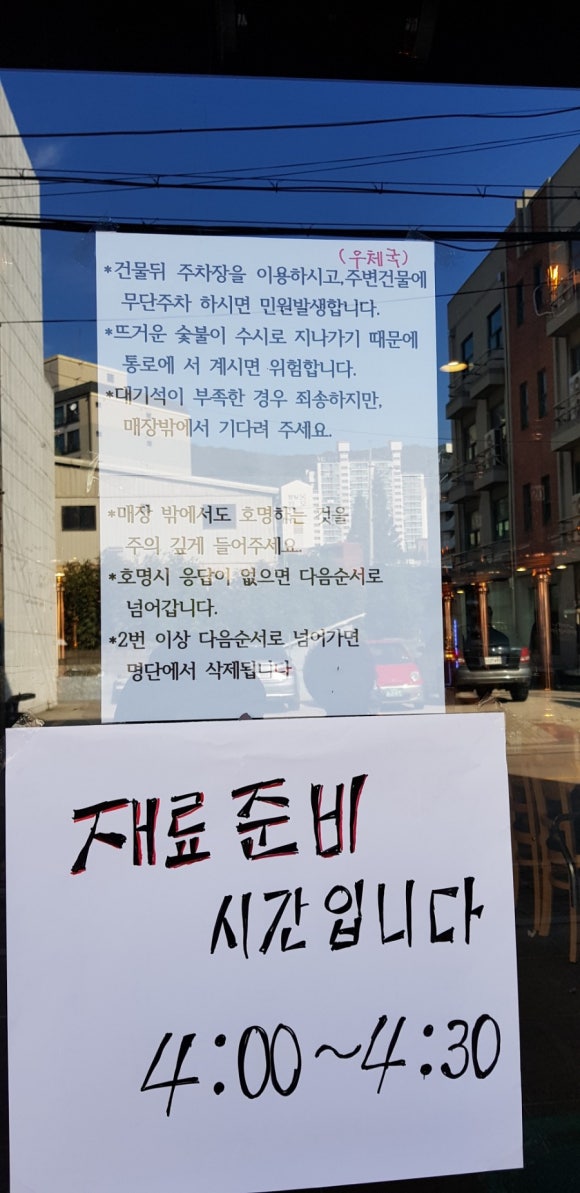 (우체국)
*건물뒤 주차장을 이용하시고,주변건물에
무단주차 하시면 민원발생합니다.
*뜨거운 숯불이 수시로 지나가기 때문에
통로에 서 계시면 위험합니다.
*대기석이 부족한 경우 죄송하지만,
매장밖에서 기다려 주세요.
*매장 밖에서도 호명하는 것을
주의 깊게 들어주세요.
*호명시 응답이 없으면 다음순서로
넘어갑니다.
*2번 이상 다음순서로 넘어가면
명단에서 삭제됩니다
재료준비
시간입니다
4:00~4:30